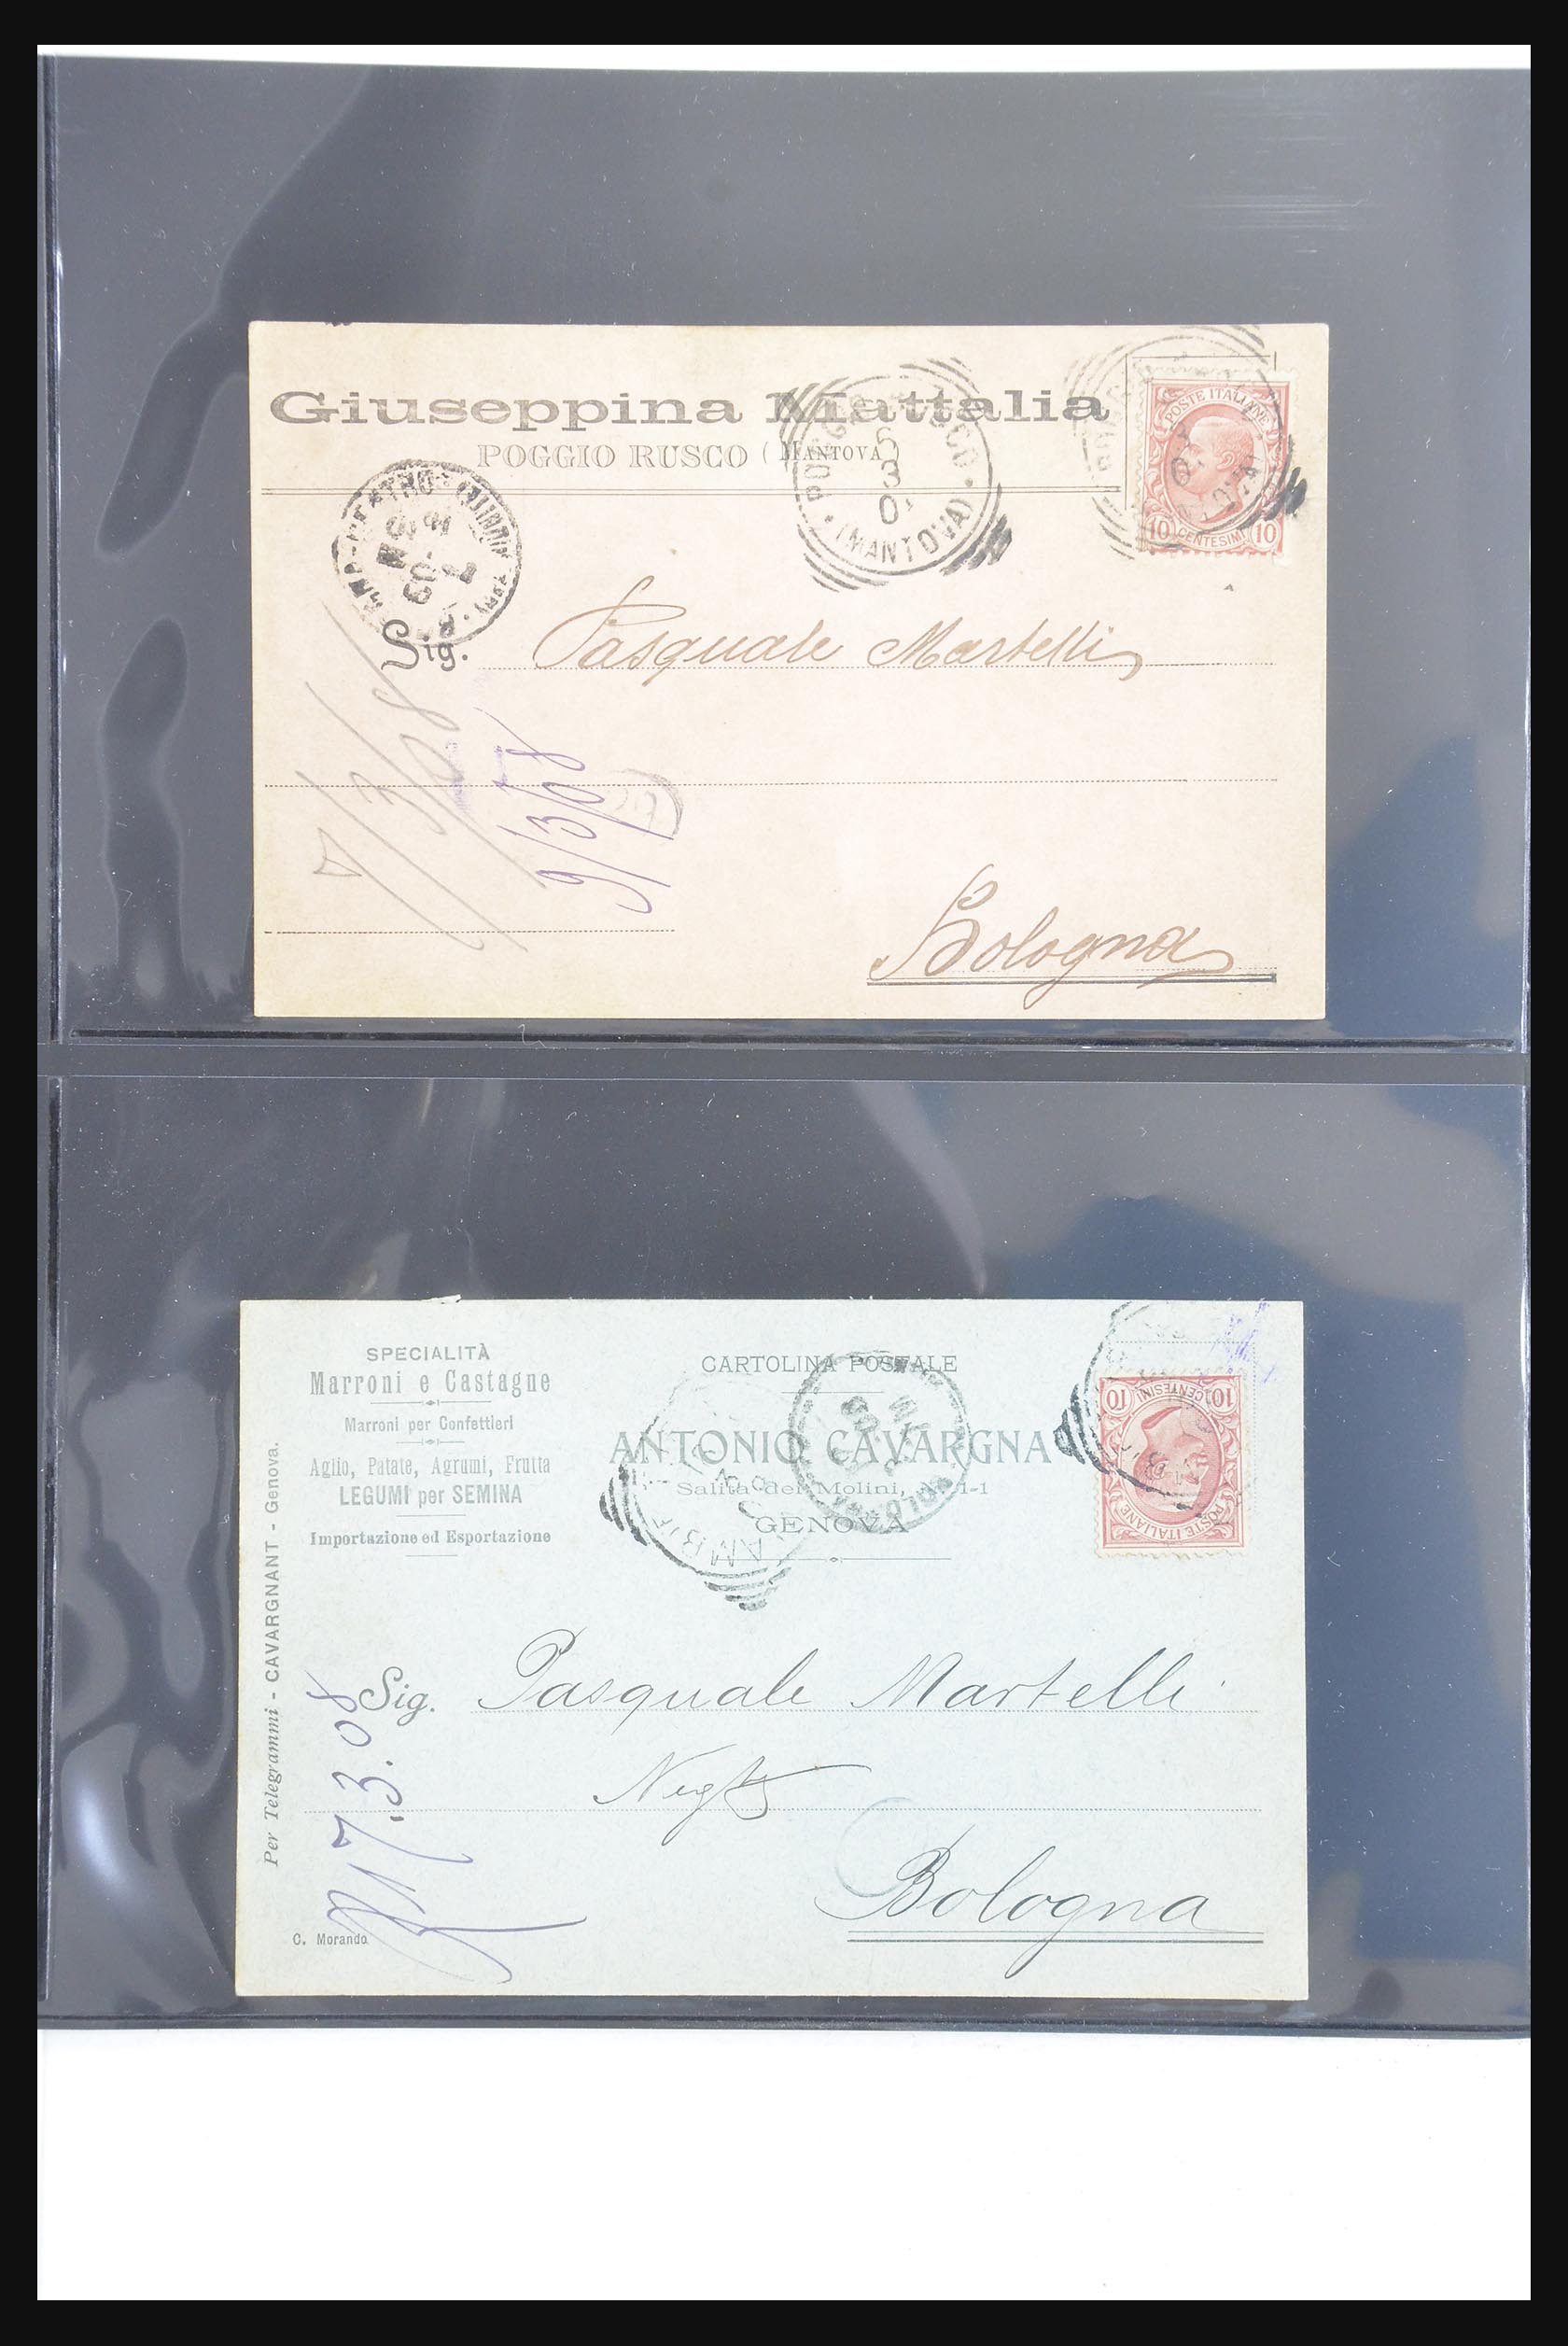 Giuseppina Mattalia
POGGIO RUSCO (MANTOVA)
6
3
(MANTOVA)
POSTE ITALIANE
10 CENTESIMI 10
Sig. Pasquale Martelli
7/3/08
9/3/08
Bologna
SPECIALITÀ
Marroni e Castagne
Marroni per Confettieri
Aglio, Patate, Agrumi, Frutta
LEGUMI per SEMINA
Importazione ed Esportazione
Per Telegrammi - CAVARGNANT - Genova.
CARTOLINA POSTALE
ANTONIO CAVARGNA
Salita dei Molini,
GENOVA
10 CENTESIMI 10
POSTE ITALIANE
Sig. Pasquale Martelli
7.3.08
Bologna
C. Morando